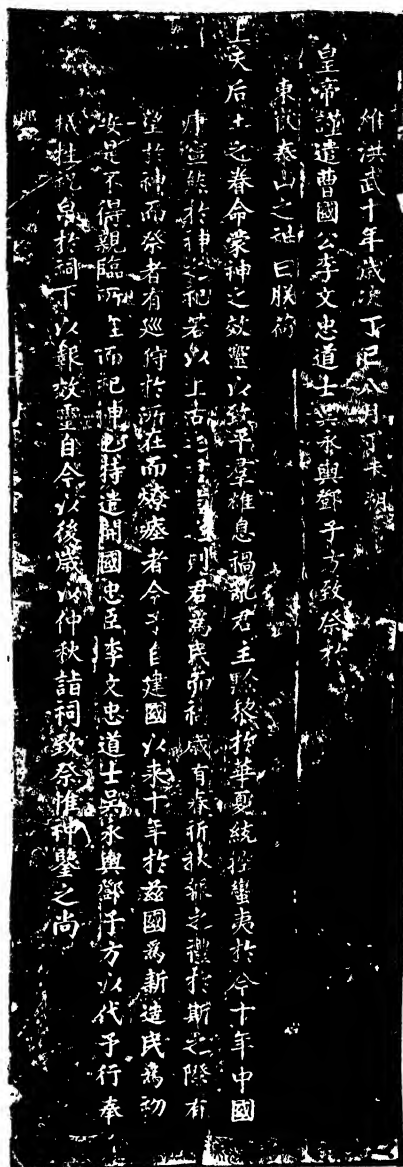 維洪武十年歲次丁巳八月丁未朔
皇帝謹遣曹國公李文忠道士吳永輿鄧子方致祭於
東嶽泰山之神曰朕荷
上天后土之眷命蒙神之效靈以致平羣雄息禍亂君主黔黎於華夏統控蠻夷於今十年中國
康寧然於神之祀若以上古之 則君爲民而祈歲有春祈秋報之禮於斯之際有
望於神而祭者有巡狩於所在而燎瘞者今予自建國以來十年於茲國爲新造民爲初
安是不得親臨所在而祀神也特遣開國忠臣李文忠道士吳永輿鄧子方以代予行奉
牲祝帛於祠下以報效靈自今以後歲以仲秋詣祠致祭惟神鑒之尚